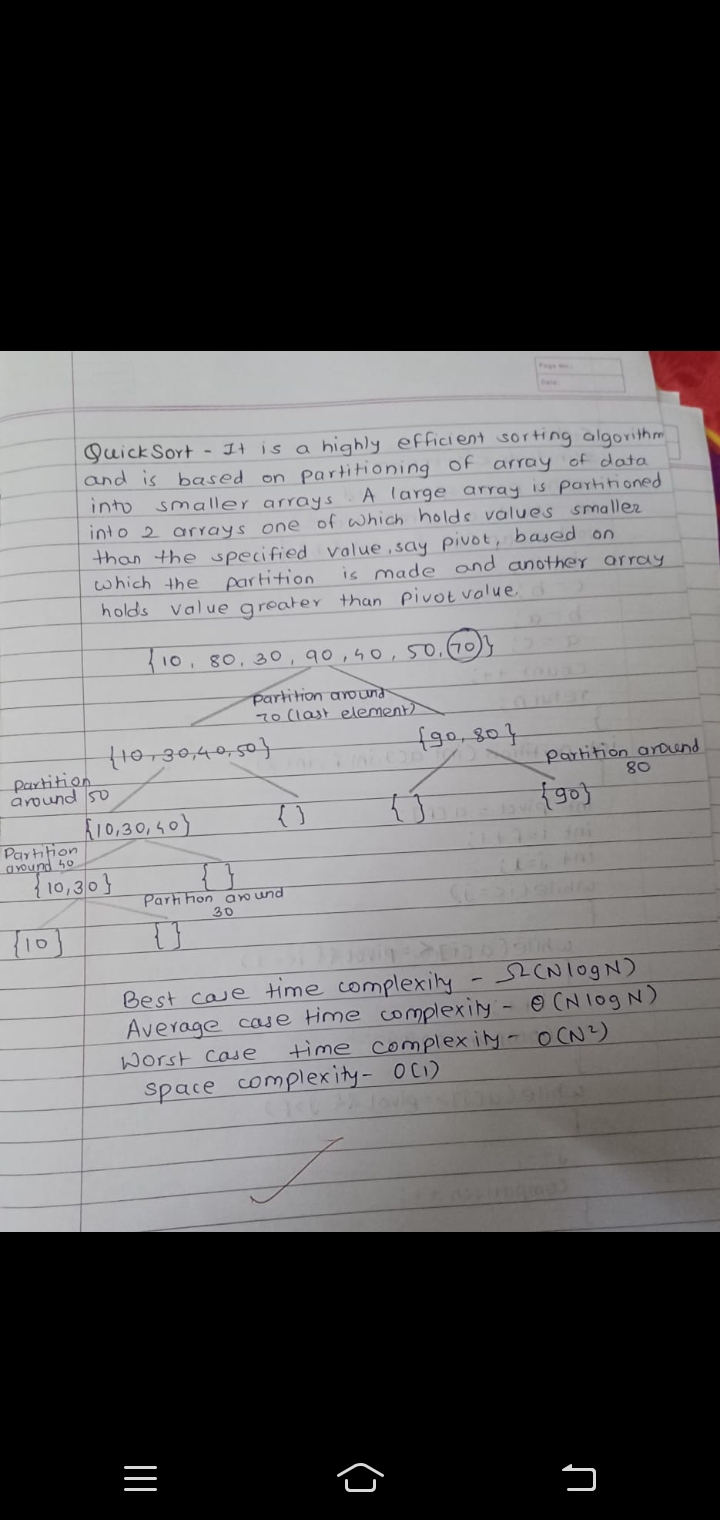 Page No.:
Date:
QuickSort - It is a highly efficient sorting algorithm
and is based on partitioning of array of data
into smaller arrays. A large array is partitioned
into 2 arrays one of which holds values smaller
than the specified value, say pivot, based on
which the partition is made and another array
holds value greater than pivot value.
{10, 80, 30, 90, 40, 50, 70}
Partition around
70 (last element)
{10, 30, 40, 50}
{90, 80}
Partition around
80
Partition
around 50
{10, 30, 40}
{ }
{ }
{90}
Partition
around 40
{10, 30}
{ }
Partition around
30
{10}
{ }
Best case time complexity - Ω(N log N)
Average case time complexity - θ(N log N)
Worst case time complexity - O(N²)
space complexity - O(1)